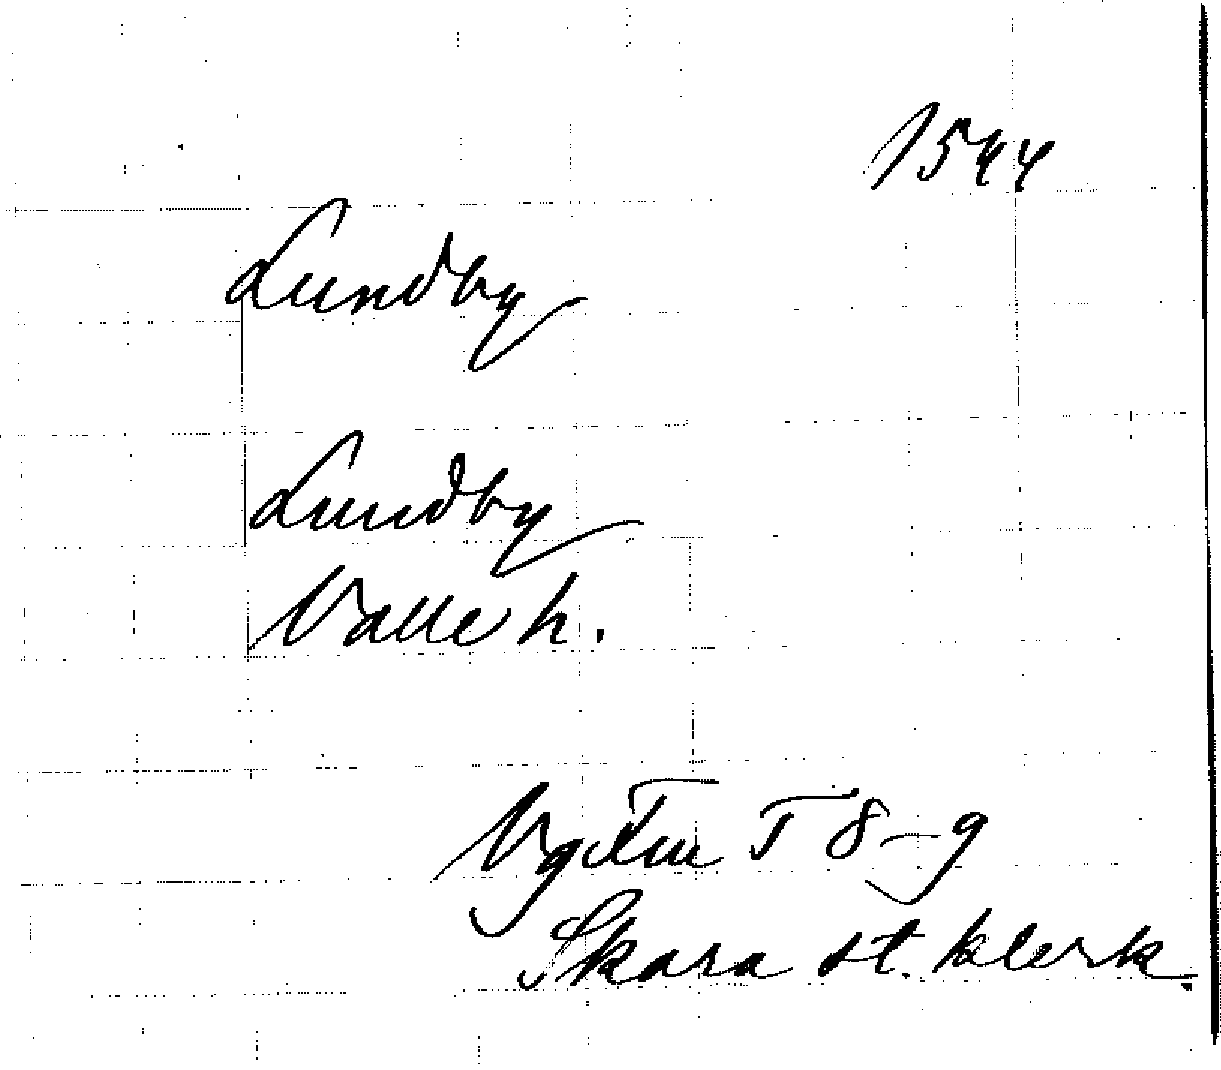 1544
Lundby
Lundby
Valle h.
T 8-9
Skara st. klerk